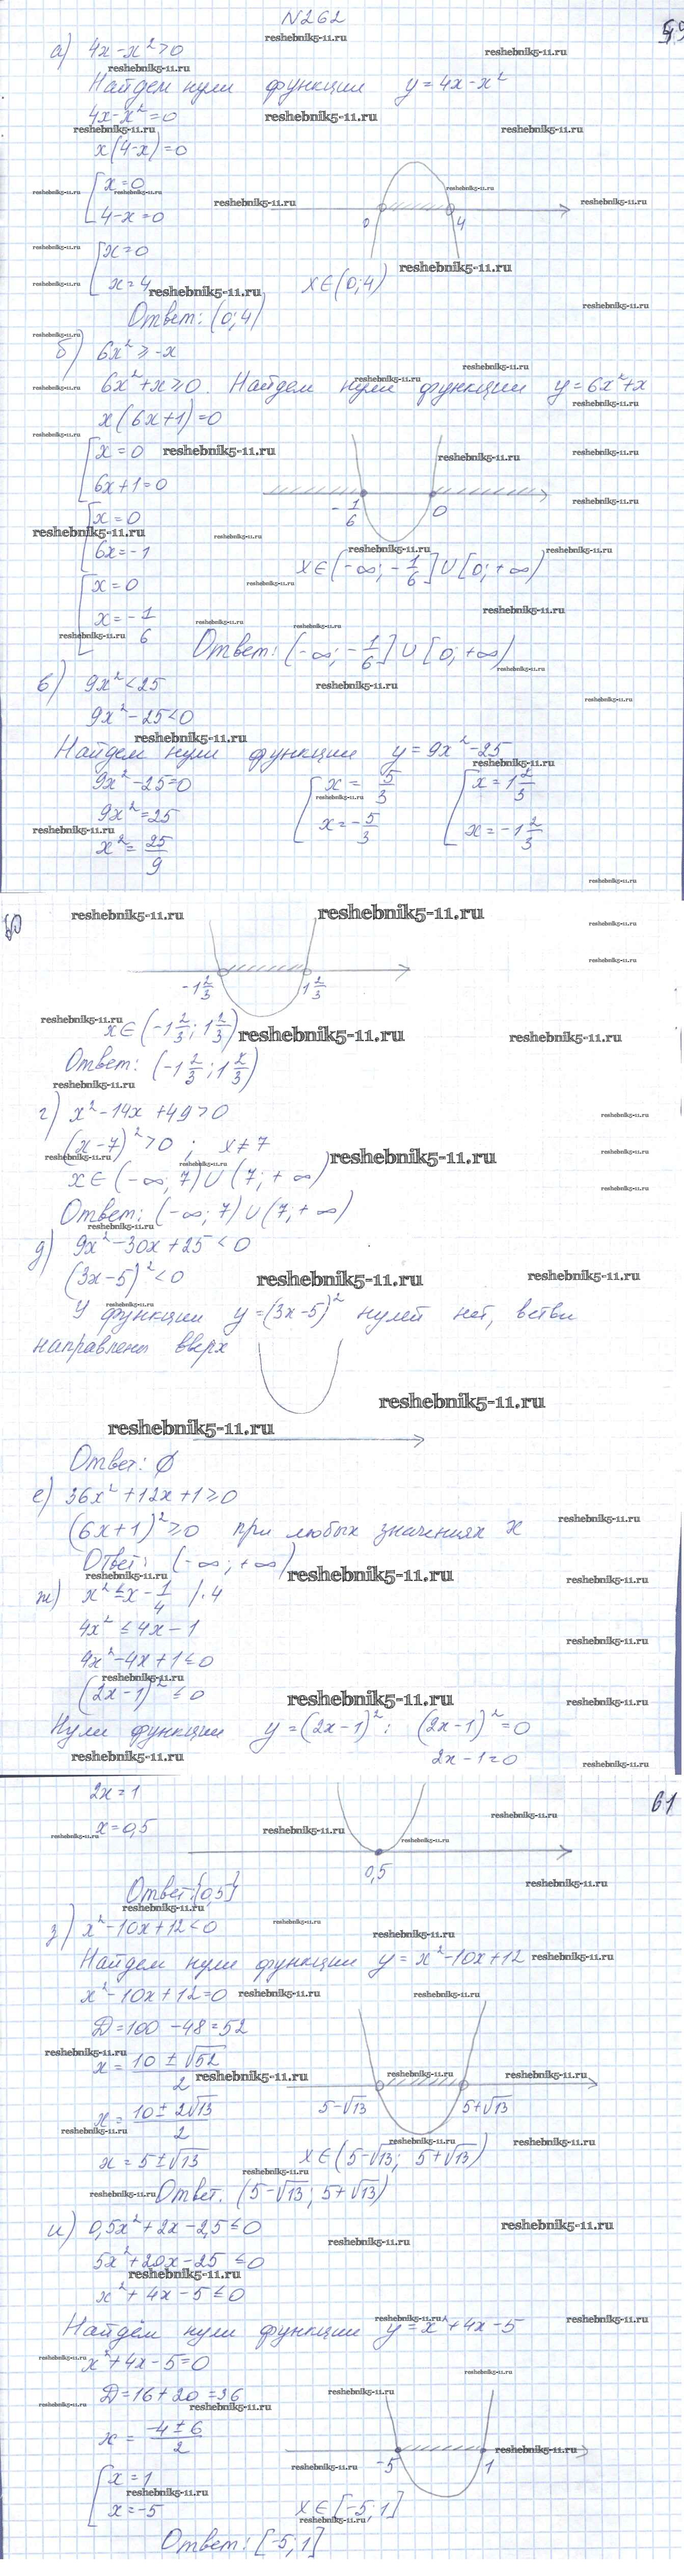 N262
а) 4x-x²>0
Найдем нули функции y=4x-x²
4x-x²=0
x(4-x)=0
[x=0
4-x=0
0 4
[x=0
x=4
x∈(0;4)
Ответ: (0;4)
б) 6x²≥-x
6x²+x≥0. Найдем нули функции y=6x²+x
x(6x+1)=0
[x=0
6x+1=0
-1/6 0
[x=0
6x=-1
x∈(-∞;-1/6]∪[0;+∞)
[x=0
x=-1/6
Ответ: (-∞;-1/6]∪[0;+∞)
в) 9x²<25
9x²-25<0
Найдем нули функции y=9x²-25
9x²-25=0
9x²=25
x²=25/9
[x=5/3
x=-5/3
[x=1 2/3
x=-1 2/3
-1 2/3 1 2/3
x∈(-1 2/3;1 2/3)
Ответ: (-1 2/3;1 2/3)
г) x²-14x+49>0
(x-7)²>0; x≠7
x∈(-∞;7)∪(7;+∞)
Ответ: (-∞;7)∪(7;+∞)
д) 9x²-30x+25<0
(3x-5)²<0
У функции y=(3x-5)² нулей нет, ветви
направлены вверх
Ответ: ∅
е) 36x²+12x+1≥0
(6x+1)²≥0 при любых значениях x
Ответ: (-∞;+∞)
ж) x²≤x-1/4 |·4
4x²≤4x-1
4x²-4x+1≤0
(2x-1)²≤0
Нули функции y=(2x-1)²: (2x-1)²=0
2x-1=0
61
2x=1
x=0,5
0,5
Ответ:{0,5}
з) x²-10x+12<0
Найдем нули функции y=x²-10x+12
x²-10x+12=0
D=100-48=52
x=(10±√52)/2
5-√13 5+√13
x=(10±2√13)/2
x=5±√13
x∈(5-√13; 5+√13)
Ответ. (5-√13; 5+√13)
и) 0,5x²+2x-2,5≤0
5x²+20x-25≤0
x²+4x-5≤0
Найдём нули функции y=x²+4x-5
x²+4x-5=0
D=16+20=36
x=(-4±6)/2
-5 1
[x=1
x=-5
x∈[-5;1]
Ответ: [-5;1]
reshebnik5-11.ru